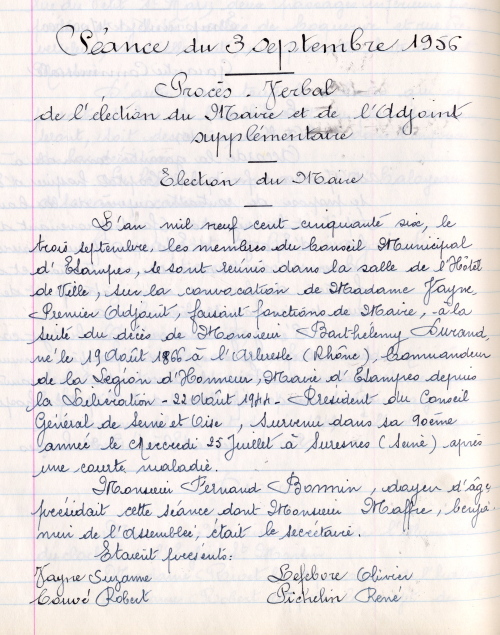 Séance du 3 septembre 1956
Procès Verbal
de l'élection du Maire et de l'Adjoint
supplémentaire
Election du Maire
L'an mil neuf cent cinquante six, le
trois septembre, les membres du Conseil Municipal
d'Etampes, se sont réunis dans la salle de l'Hôtel
de Ville, sur la convocation de Madame Jayne
Premier Adjoint, faisant fonctions de Maire, à la
suite du décès de Monsieur Barthélemy Durand,
né le 19 Août 1866 à l'Arbresle (Rhône), Commandeur
de la Légion d'Honneur, Maire d'Etampes depuis
la Libération - 22 Août 1944 - Président du Conseil
Général de Seine et Oise, survenu dans sa 90ème
année le Mercredi 25 Juillet à Suresnes (Seine) après
une courte maladie.
Monsieur Fernand Bonnin, doyen d'âge
présidait cette séance dont Monsieur Maffre, benja-
min de l'Assemblée, était le secrétaire.
Etaient présents:
Jayne Suzanne Lefebvre Olivier
Couvé Robert Pichelin René